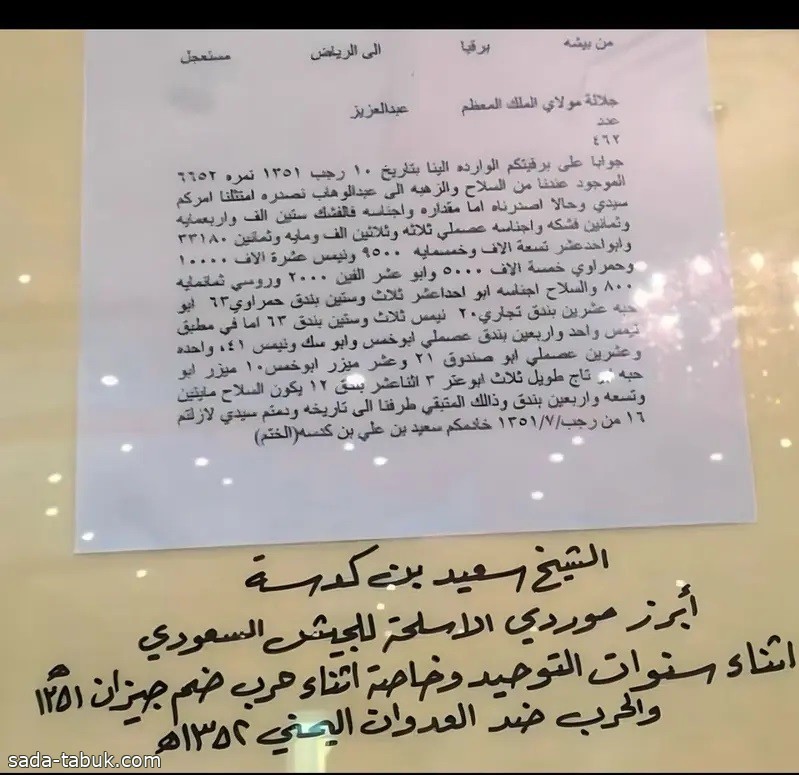 من بيشه برقيا الى الرياض مستعجل
جلالة مولاي الملك المعظم عبدالعزيز
عدد
٤٦٢
جوابا على برقيتكم الوارده الينا بتاريخ ١٠ رجب ١٣٥١ نمره ٦٦٥٢
الموجود عندنا من السلاح والزهبه الى عبدالوهاب نصدره امتثلنا امركم
سيدي وحالا اصدرناه اما مقداره واجناسه فالفشك ستين الف واربعمايه
وثمانين فشكه واجناسه عصملي ثلاثه وثلاثين الف ومايه وثمانين ٣٣١٨٠
وابواحدعشر تسعة الاف وخمسمايه ٩٥٠٠ ونيمس عشرة الاف ١٠٠٠٠
وحمراوي خمسة الاف ٥٠٠٠ وابو عشر الفين ٢٠٠٠ وروسي ثمانمايه
٨٠٠ والسلاح اجناسه ابو احداعشر ثلاث وستين بندق حمراوي ٦٣ ابو
حبه عشرين بندق تجاري ٢٠ نيمس ثلاث وستين بندق ٦٣ اما في مطبق
نيمس واحد واربعين بندق عصملي ابوخمس وابو سك ونيمس ٤١، واحده
وعشرين عصملي ابو صندوق ٢١ وعشر ميزر ابوخمس ١٠ ميزر ابو
حبه ابو تاج طويل ثلاث ابوعتر ٣ اثناعشر بندق ١٢ يكون السلاح مايتين
وتسعه واربعين بندق وذالك المتبقي طرفنا الى تاريخه ودمتم سيدي لازلتم
١٦ من رجب/١٣٥١/٧ خادمكم سعيد بن علي بن كدسه(الختم)
الشيخ سعيد بن كدسة
أبرز موردي الاسلحة للجيش السعودي
اثناء سنوات التوحيد وخاصة اثناء حرب ضم جيزان ١٣٥١هـ
والحرب ضد العدوان اليمني ١٣٥٢هـ
sada-tabuk.com